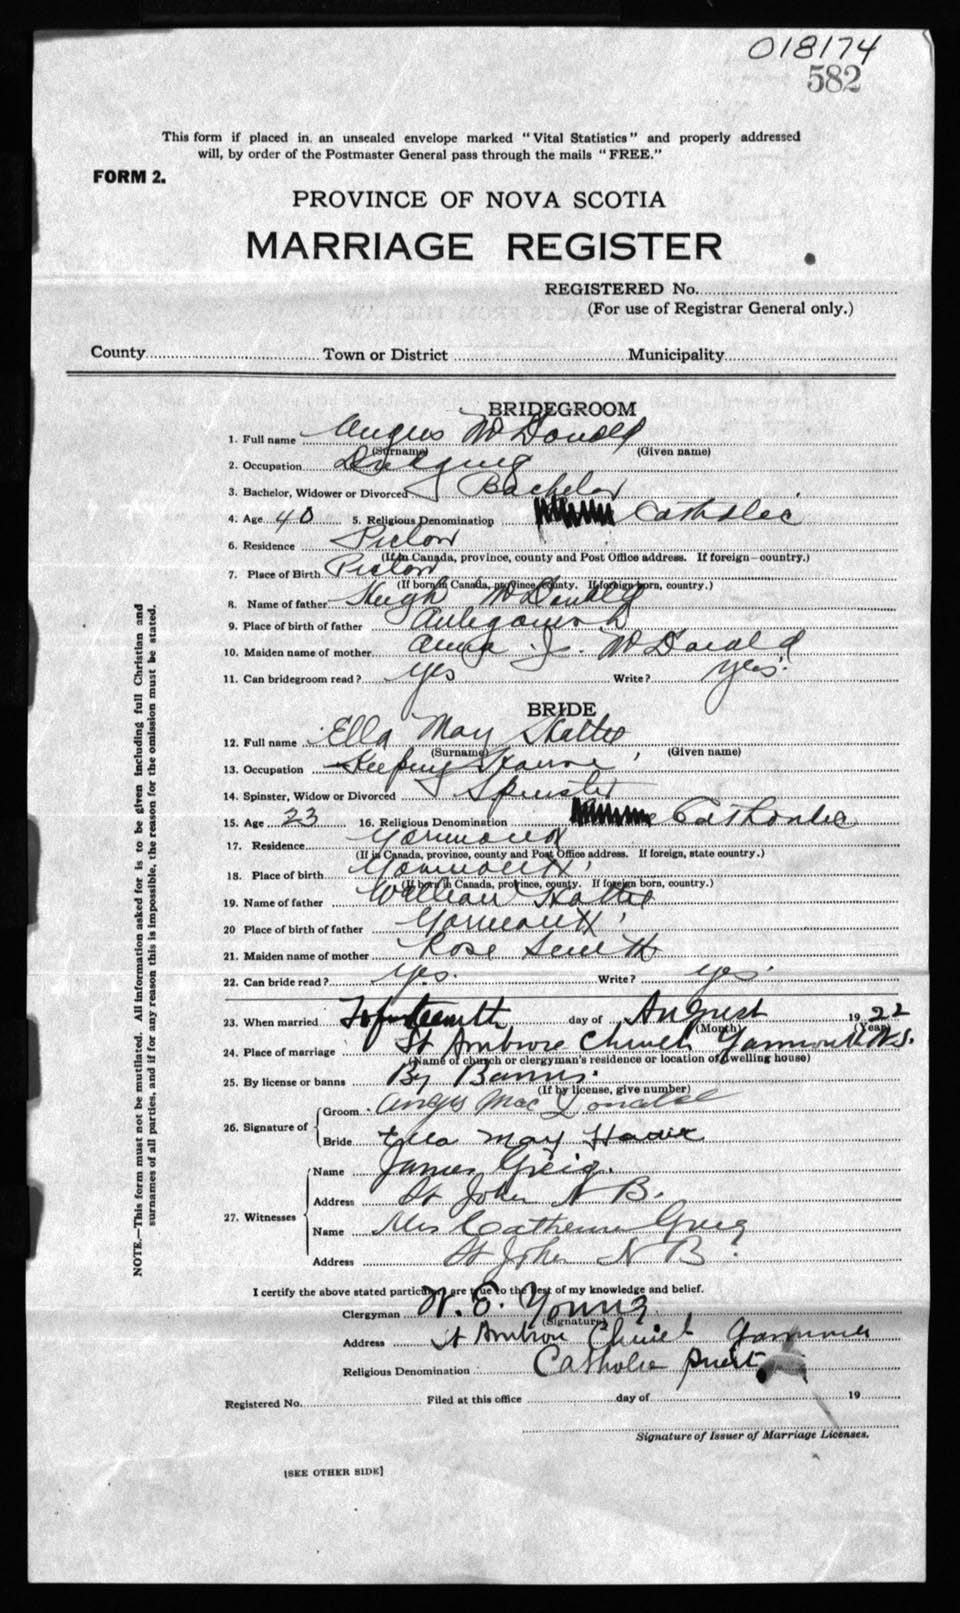 018174
582
This form if placed in an unsealed envelope marked "Vital Statistics" and properly addressed
will, by order of the Postmaster General pass through the mails "FREE."
FORM 2.
PROVINCE OF NOVA SCOTIA
MARRIAGE REGISTER
REGISTERED No.
(For use of Registrar General only.)
County Town or District Municipality
BRIDEGROOM
1. Full name Angus McDonald
(Surname) (Given name)
2. Occupation Dredging
3. Bachelor, Widower or Divorced Bachelor
4. Age 40 5. Religious Denomination Catholic
6. Residence Pictou
(If in Canada, province, county and Post Office address. If foreign—country.)
7. Place of Birth Pictou
(If born in Canada, province, county. If foreign born, country.)
8. Name of father Hugh McDonald
9. Place of birth of father Antigonish
10. Maiden name of mother Anna Js. McDonald
11. Can bridegroom read? yes Write? yes.
BRIDE
12. Full name Ella May Hattie
(Surname) (Given name)
13. Occupation Keeping House
14. Spinster, Widow or Divorced Spinster
15. Age 23 16. Religious Denomination Catholic
17. Residence Yarmouth
(If in Canada, province, county and Post Office address. If foreign, state country.)
18. Place of birth Yarmouth
(If born in Canada, province, county. If foreign born, country.)
19. Name of father William Hattie
20 Place of birth of father Yarmouth
21. Maiden name of mother Rose Smith
22. Can bride read? yes. Write? yes.
23. When married day of August 1922
(Month) (Year)
24. Place of marriage St Ambrose Church Yarmouth N.S.
(Name of church or clergyman's residence or location of dwelling house)
25. By license or banns By Banns.
(If by license, give number)
26. Signature of Groom Angus MacDonald
Bride Ella May
27. Witnesses
Name James Greig.
Address St John N B.
Name Mrs Catherine Greig
Address St John N B.
I certify the above stated particulars are true to the best of my knowledge and belief.
Clergyman W. E. Young
(Signature)
Address St Ambrose Church
Religious Denomination Catholic priest
Registered No. Filed at this office day of 19
Signature of Issuer of Marriage Licenses.
[SEE OTHER SIDE]
NOTE.—This form must not be mutilated. All information asked for is to be given including full Christian and
surnames of all parties, and if for any reason this is impossible, the reason for the omission must be stated.